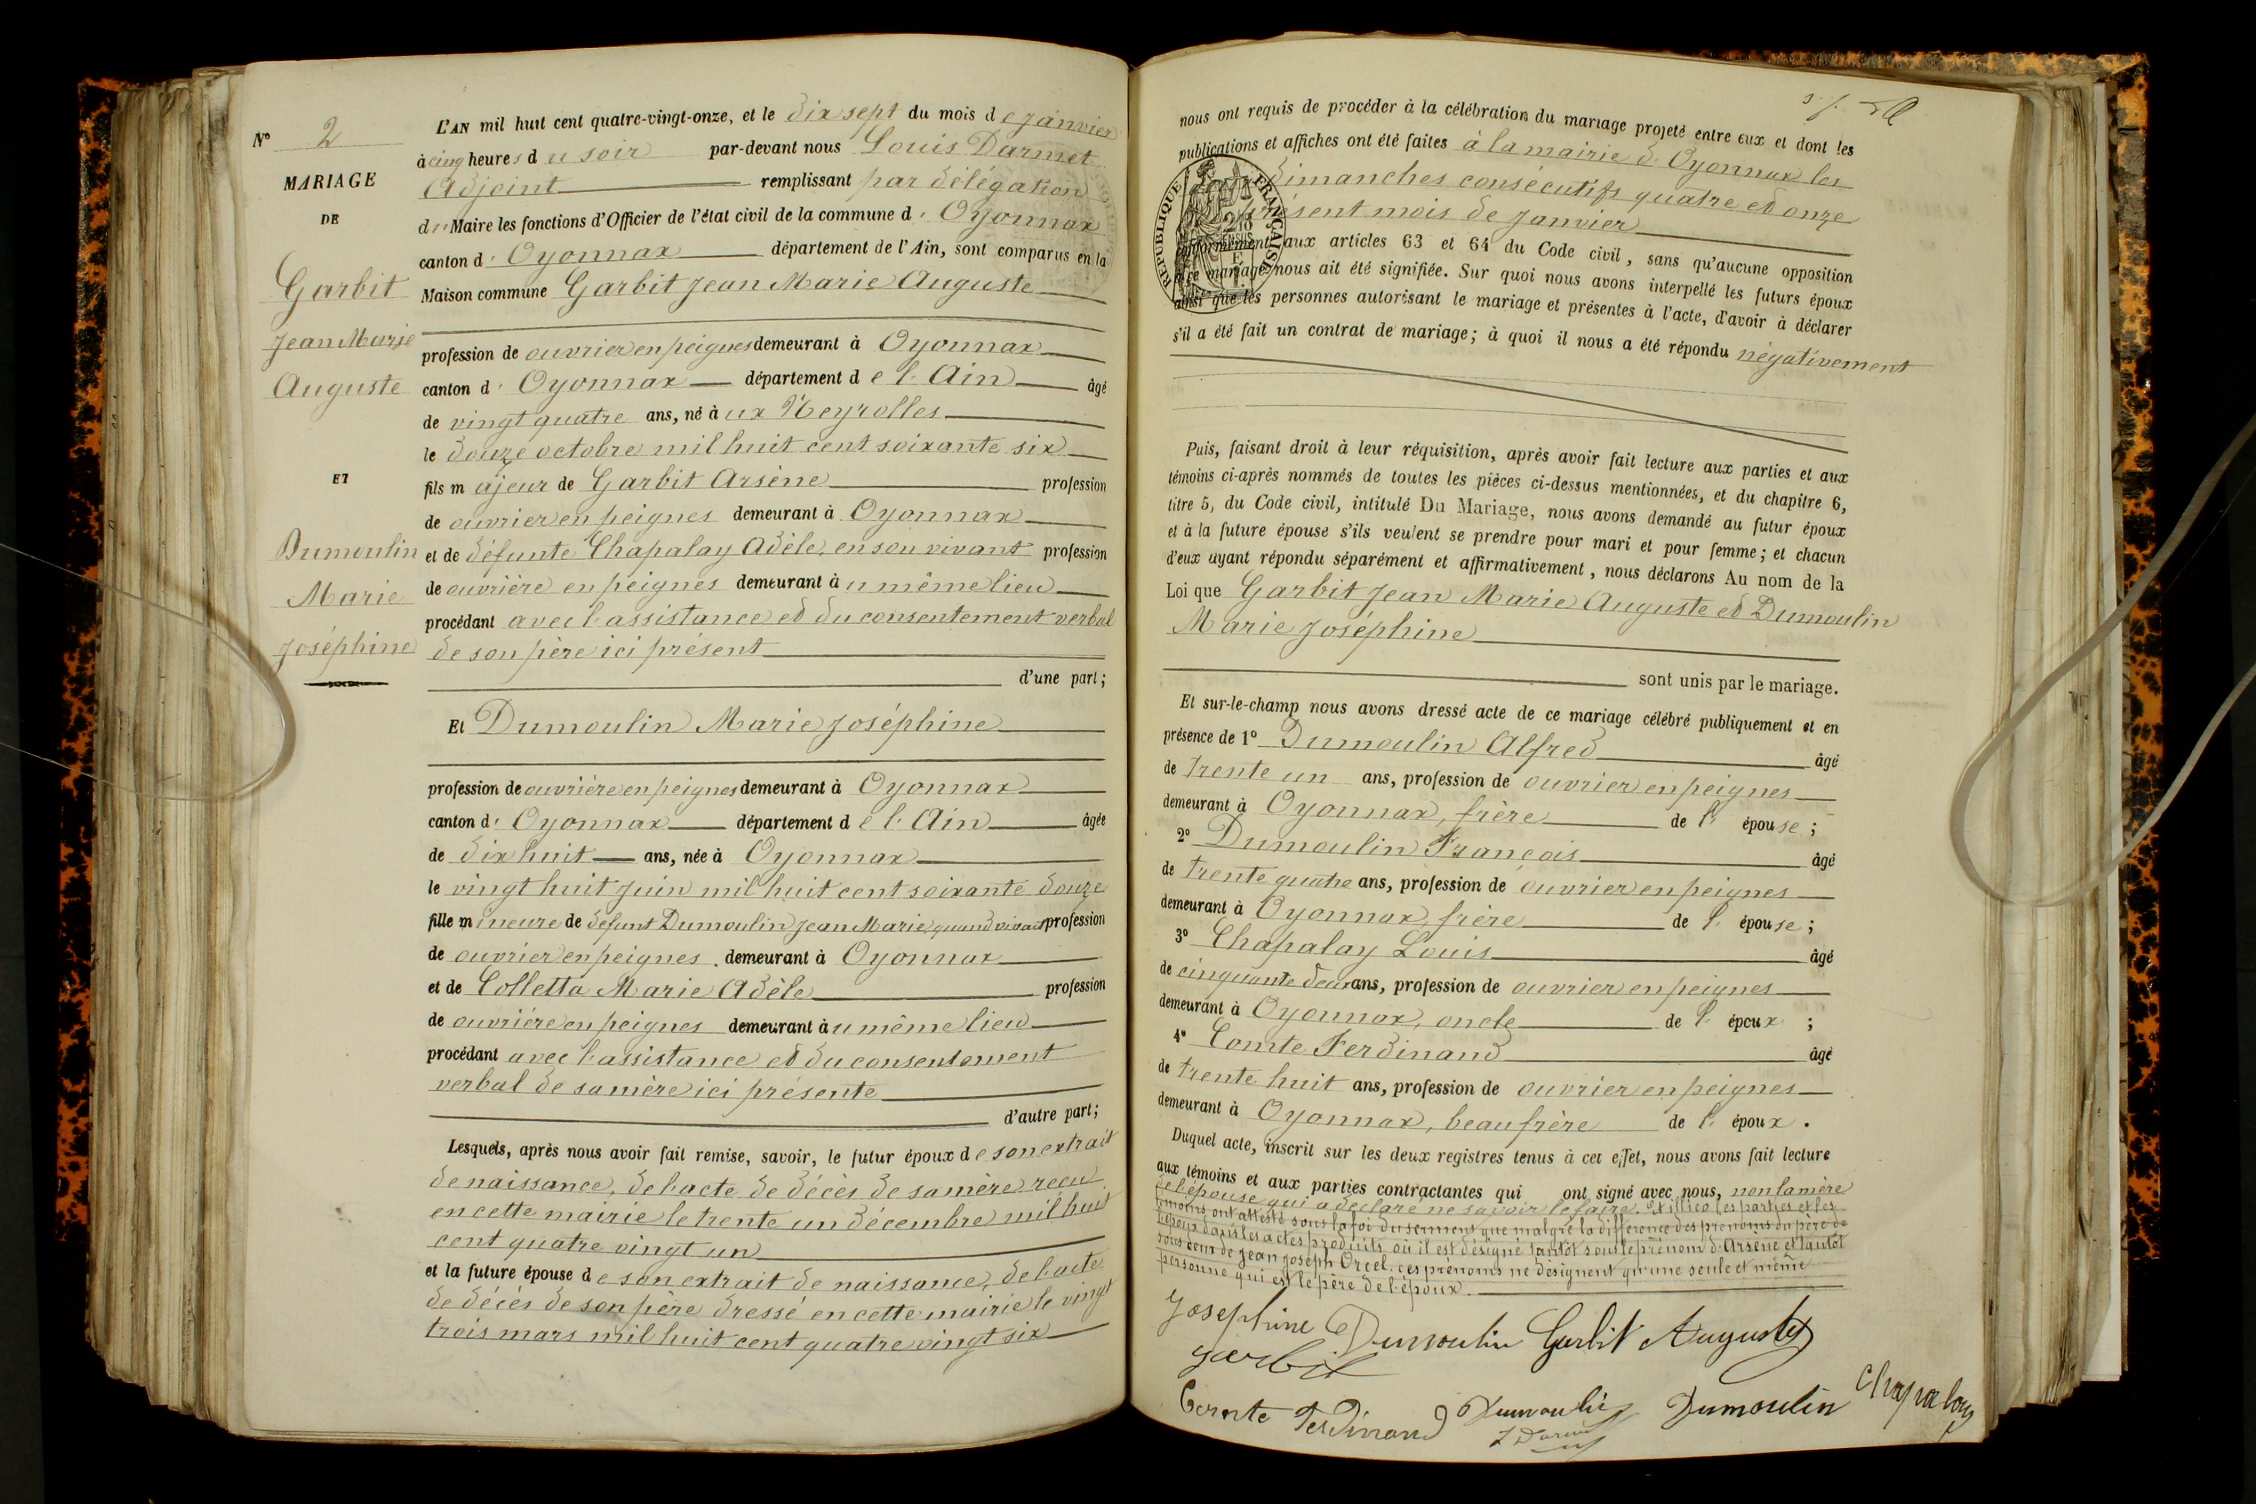 N° 2
MARIAGE
DE
Garbit
Jean Marie
Auguste
ET
Dumoulin
Marie
Joséphine
L'AN mil huit cent quatre-vingt-onze, et le dix sept du mois de janvier
à cinq heures du soir par-devant nous Louis Darmet
Adjoint remplissant par délégation
du Maire les fonctions d'Officier de l'état civil de la commune d'Oyonnax
canton d'Oyonnax département de l'Ain, sont comparus en la
Maison commune Garbit Jean Marie Auguste
profession de ouvrier en peignes demeurant à Oyonnax
canton d'Oyonnax département de l'Ain âgé
de vingt quatre ans, né aux Neyrolles
le douze octobre mil huit cent soixante six
fils majeur de Garbit Arsène profession
de ouvrier en peignes demeurant à Oyonnax
et de défunte Chapalay Adèle, en son vivant profession
de ouvrière en peignes demeurant au même lieu
procédant avec l'assistance et du consentement verbal
de son père ici présent
d'une part;
Et Dumoulin Marie Joséphine
profession de ouvrière en peignes demeurant à Oyonnax
canton d'Oyonnax département de l'Ain âgée
de dix huit ans, née à Oyonnax
le vingt huit juin mil huit cent soixante douze
fille mineure de défunt Dumoulin Jean Marie quand vivait profession
de ouvrier en peignes demeurant à Oyonnax
et de Colletta Marie Adèle profession
de ouvrière en peignes demeurant au même lieu
procédant avec l'assistance et du consentement
verbal de sa mère ici présente
d'autre part;
Lesquels, après nous avoir fait remise, savoir, le futur époux de son extrait
de naissance, de l'acte de décès de sa mère, reçu
en cette mairie le trente un décembre mil huit
cent quatre vingt un
et la future épouse de son extrait de naissance, de l'acte
de décès de son père dressé en cette mairie le vingt
trois mars mil huit cent quatre vingt six
nous ont requis de procéder à la célébration du mariage projeté entre eux et dont les
publications et affiches ont été faites à la mairie d'Oyonnax les
dimanches consécutifs quatre et onze
présent mois de janvier
REPUBLIQUE FRANÇAISE
conformément aux articles 63 et 64 du Code civil, sans qu'aucune opposition
à ce mariage nous ait été signifiée. Sur quoi nous avons interpellé les futurs époux
ainsi que les personnes autorisant le mariage et présentes à l'acte, d'avoir à déclarer
s'il a été fait un contrat de mariage; à quoi il nous a été répondu négativement
Puis, faisant droit à leur réquisition, après avoir fait lecture aux parties et aux
témoins ci-après nommés de toutes les pièces ci-dessus mentionnées, et du chapitre 6,
titre 5, du Code civil, intitulé Du Mariage, nous avons demandé au futur époux
et à la future épouse s'ils veulent se prendre pour mari et pour femme; et chacun
d'eux ayant répondu séparément et affirmativement, nous déclarons Au nom de la
Loi que Garbit Jean Marie Auguste et Dumoulin
Marie Joséphine
sont unis par le mariage.
Et sur-le-champ nous avons dressé acte de ce mariage célébré publiquement et en
présence de 1° Dumoulin Alfred âgé
de trente un ans, profession de ouvrier en peignes
demeurant à Oyonnax, frère de l'épouse;
2° Dumoulin François âgé
de trente quatre ans, profession de ouvrier en peignes
demeurant à Oyonnax, frère de l'épouse;
3° Chapalay Louis âgé
de cinquante deux ans, profession de ouvrier en peignes
demeurant à Oyonnax, oncle de l'époux;
4° Comte Ferdinand âgé
de trente huit ans, profession de ouvrier en peignes
demeurant à Oyonnax, beau frère de l'époux.
Duquel acte, inscrit sur les deux registres tenus à cet effet, nous avons fait lecture
aux témoins et aux parties contractantes qui ont signé avec nous, non la mère
de l'épouse qui a déclaré ne savoir le faire. Et illico les parties et les
témoins ont attesté sous la foi du serment que malgré la différence des prénoms du père de
l'époux dans les actes produits où il est désigné tantôt sous le prénom d'Arsène et tantôt
sous ceux de Jean Joseph Orcel, ces prénoms ne désignent qu'une seule et même
personne qui est le père de l'époux.
Josephine Dumoulin Garbit Auguste
garbit
Comte Ferdinand Dumoulin Dumoulin Chapalay
L Darmet